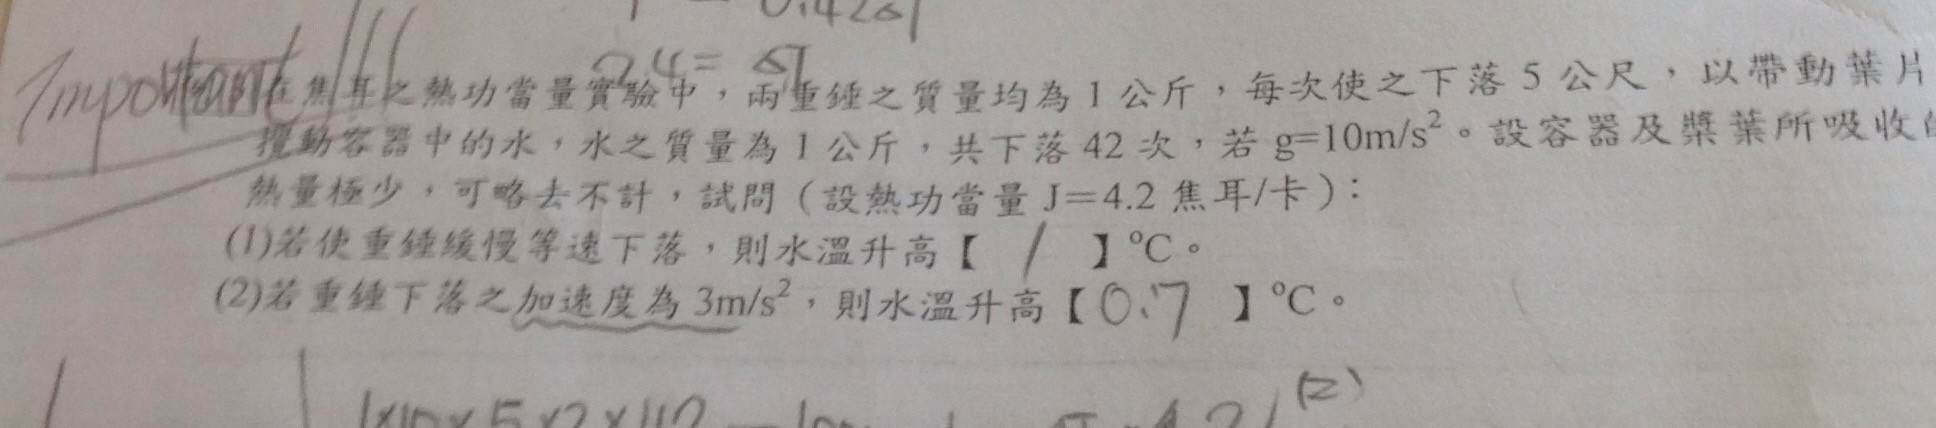 0.4281
24=
Important!!!
在焦耳之熱功當量實驗中，兩重錘之質量均為 1 公斤，每次使之下落 5 公尺，以帶動葉片
攪動容器中的水，水之質量為 1 公斤，共下落 42 次，若 g=10m/s²。設容器及槳葉所吸收的
熱量極少，可略去不計，試問（設熱功當量 J＝4.2 焦耳/卡）：
(1)若使重錘緩慢等速下落，則水溫升高【 1 】℃。
(2)若重錘下落之加速度為 3m/s²，則水溫升高【0.7 】℃。
(2)
1×10×5×2×42